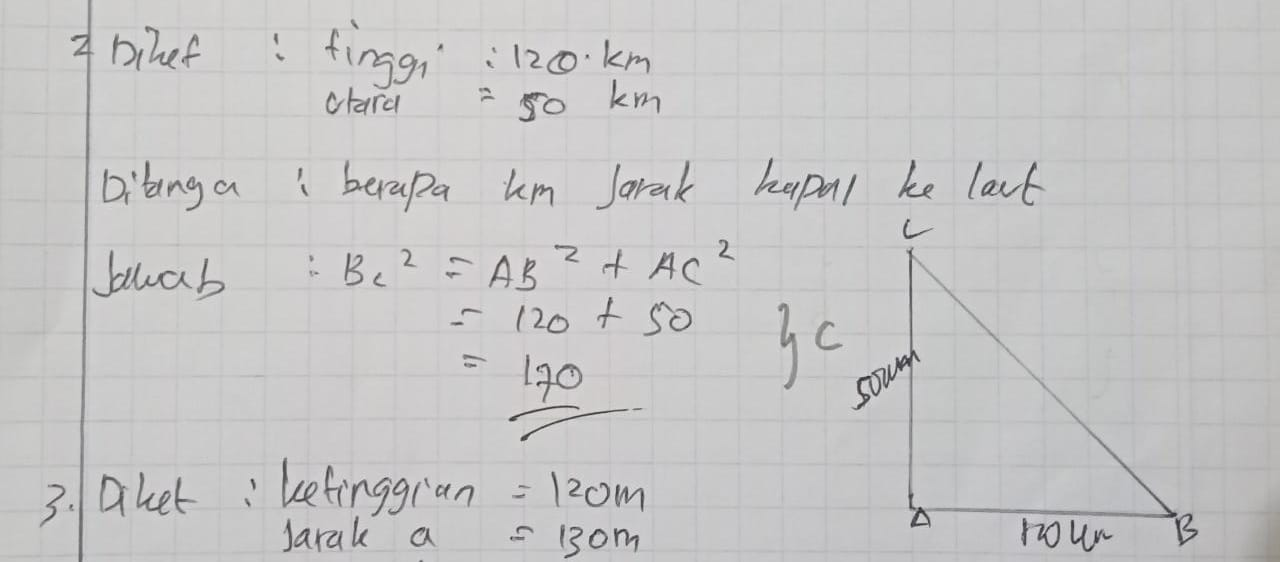 2 Diket : tinggi : 120 km
Utara = 50 km
Ditanya : berapa km Jarak kapal ke laut
Jawab : BC² = AB² + AC²
= 120 + 50
= 170
} C
C
50 km
A
120 km
B
3. Diket : ketinggian = 120m
Jarak a = 130m